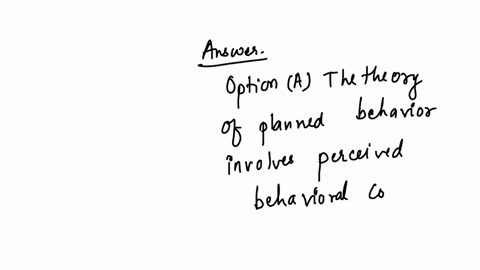 Answer.
Option (A) The theory
of planned behavior
involves perceived
behavioral Co